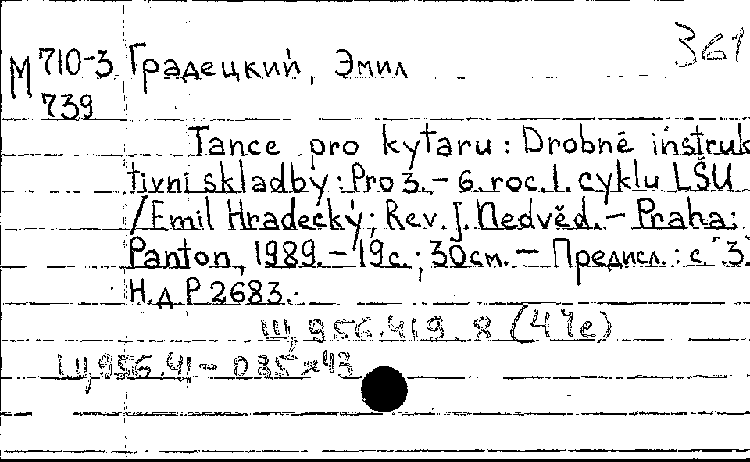 361
М 710-3 Градецкий, Эмил
739
Tance pro kytaru : Drobné instruk
tivní skladby : Pro 3. – 6. roc. I. cyklu LŠU
/Emil Hradecký; Rev. J. Nedvěd. – Praha:
Panton, 1989. – 19с.; 30см. – Предисл.: с. 3.
Н.д P 2683.
Щ956.419.8 (4Че)
Щ956.41-